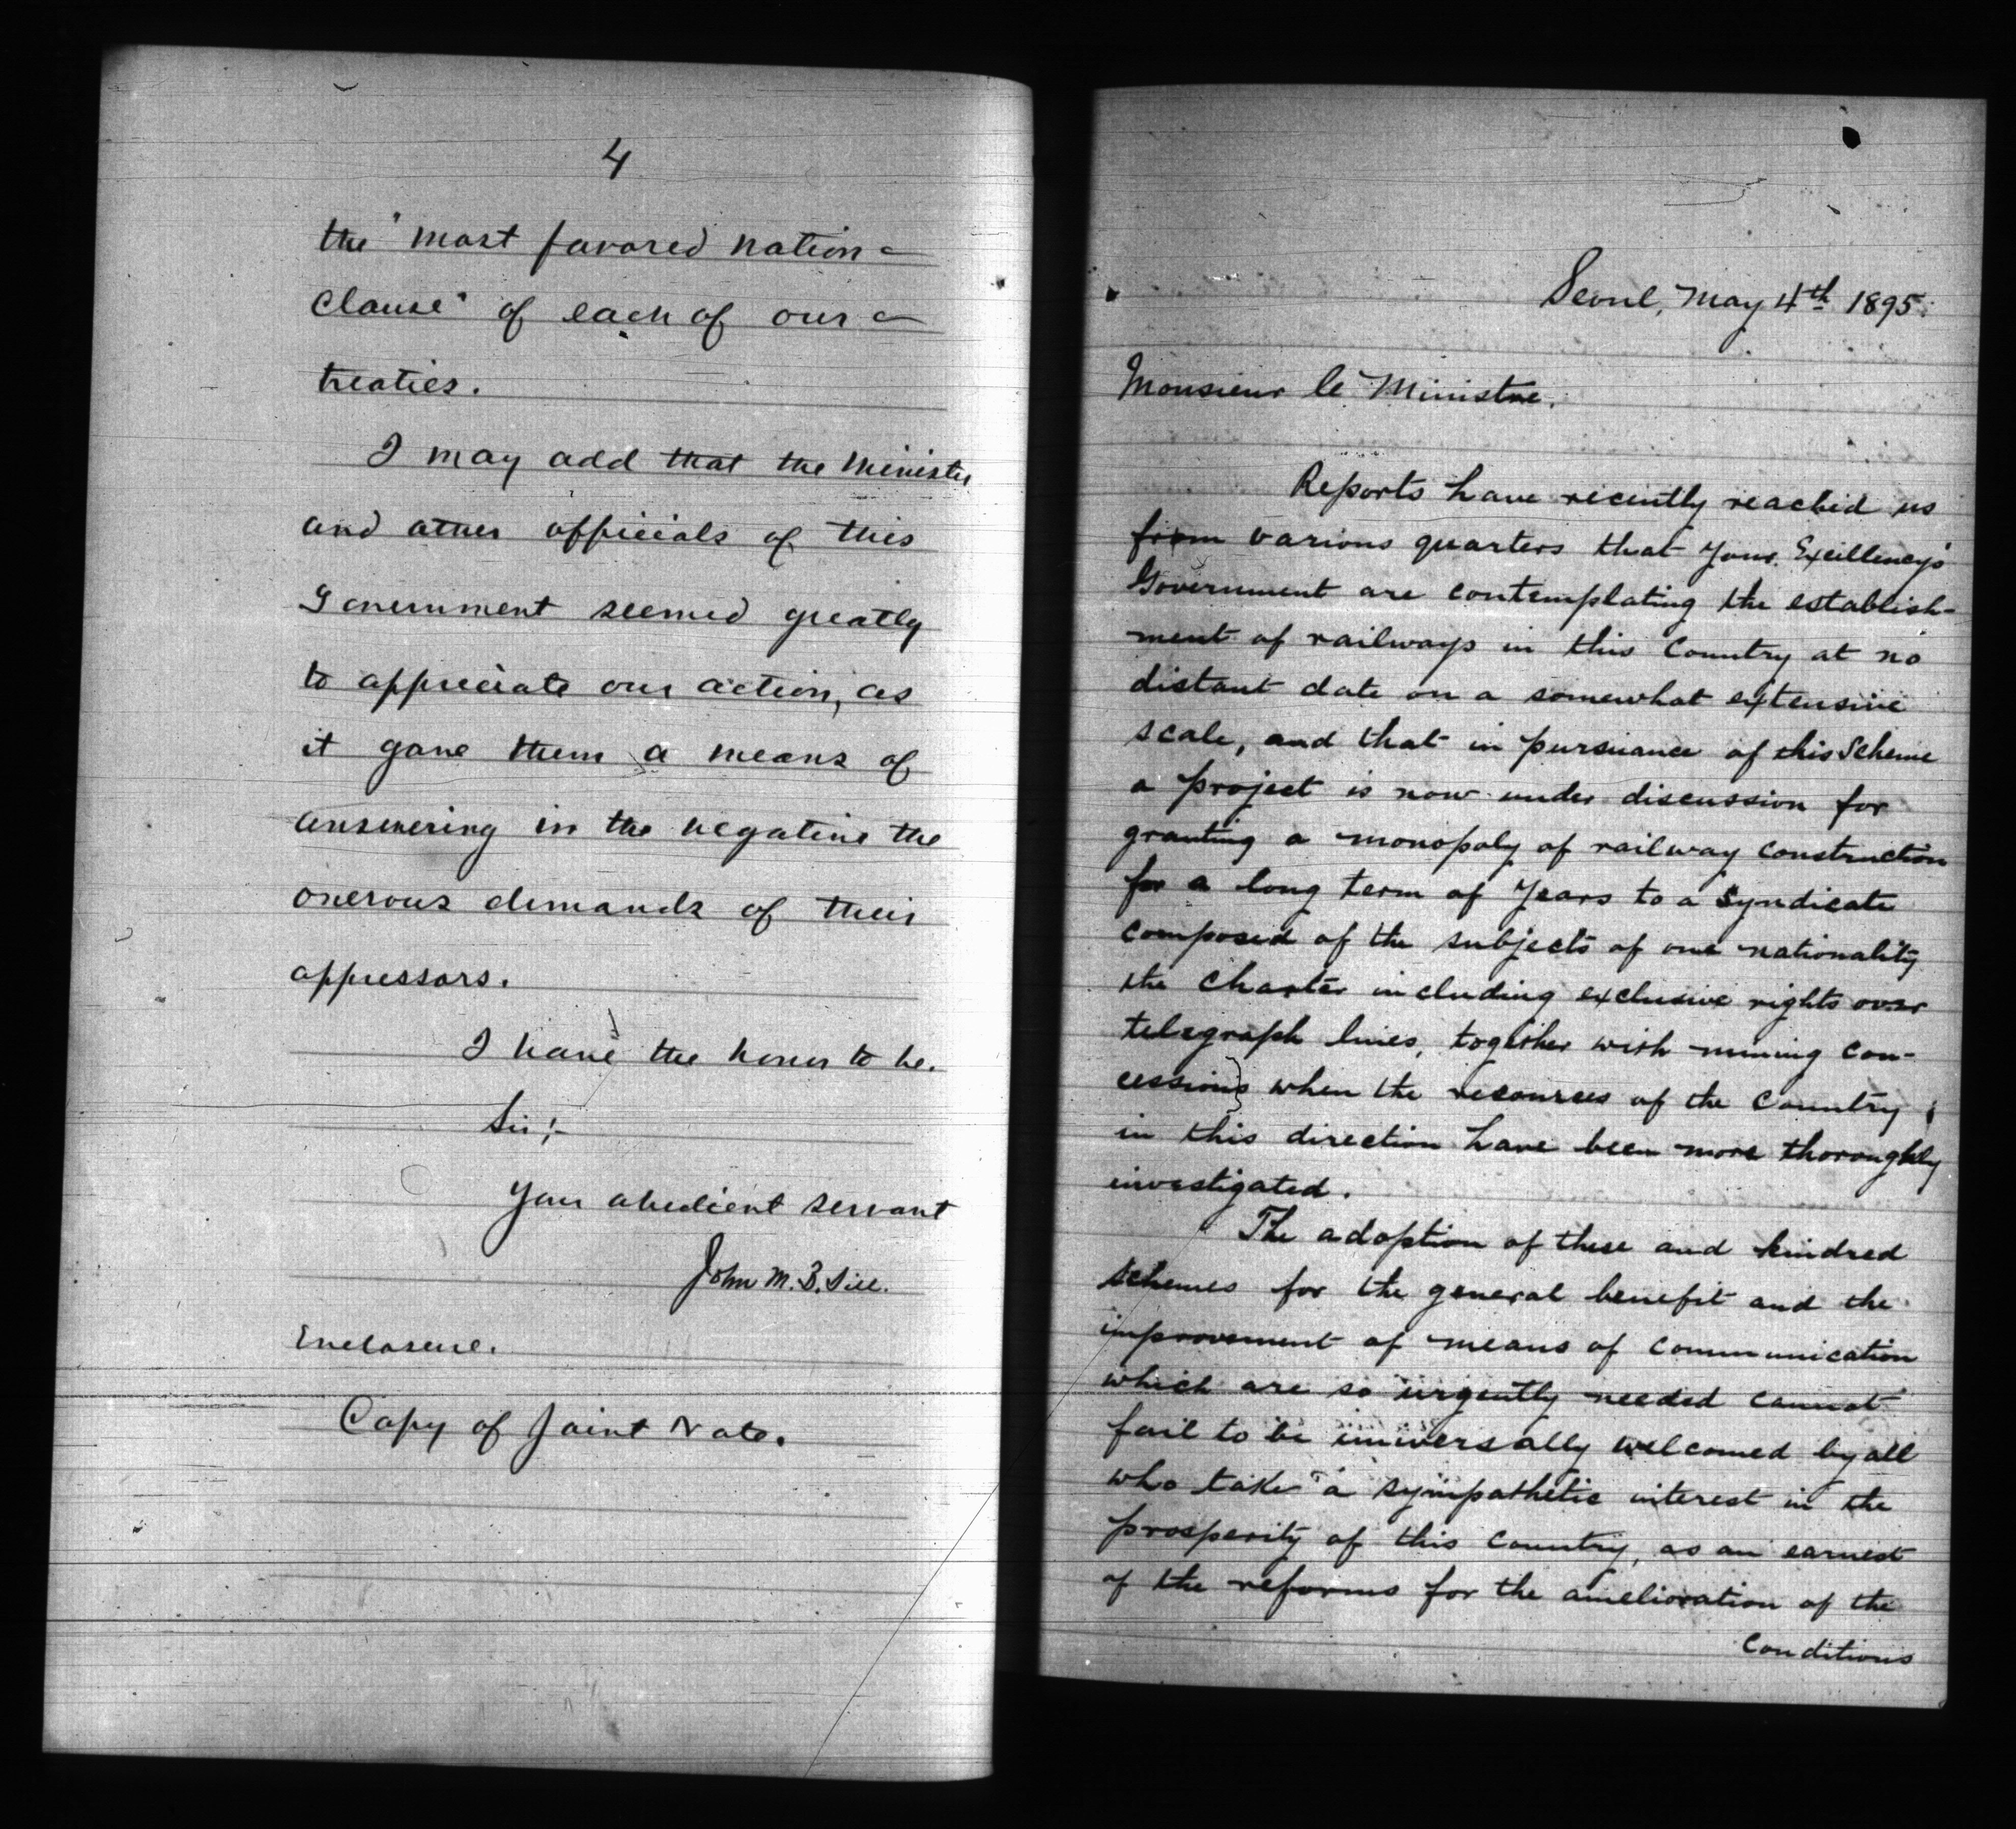 4
the "most favored nation
clause" of each of our
treaties.
I may add that the Minister
and other officials of this
Government seemed greatly
to appreciate our action, as
it gave them a means of
answering in the negative the
onerous demands of their
oppressors.
I have the honor to be.
Sir;-
Your obedient servant
John M. B. Sill.
Enclosure.
Copy of Joint Note.
Seoul, May 4th 1895.
Monsieur le Ministre.
Reports have recently reached us
from various quarters that Your Excellency's
Government are contemplating the establish-
ment of railways in this Country at no
distant date on a somewhat extensive
scale, and that in pursuance of this Scheme
a project is now under discussion for
granting a monopoly of railway construction
for a long term of Years to a Syndicate
composed of the subjects of one nationality
the Charter including exclusive rights over
telegraph lines, together with mining con-
cessions when the resources of the Country
in this direction have been more thoroughly
investigated.
The adoption of these and kindred
schemes for the general benefit and the
improvement of means of communication
which are so urgently needed cannot
fail to be universally welcomed by all
who take a sympathetic interest in the
prosperity of this Country, as an earnest
of the reforms for the amelioration of the
Conditions